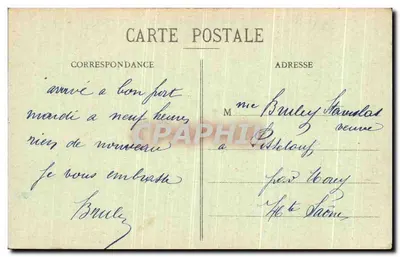 CARTE POSTALE
CORRESPONDANCE
arrivé a bon port
mardi a neuf heures
rien de nouveau
je vous embrasse
Bruley
ADRESSE
Mme Bruley Stanislas
veuve
a
par
Hte Saône